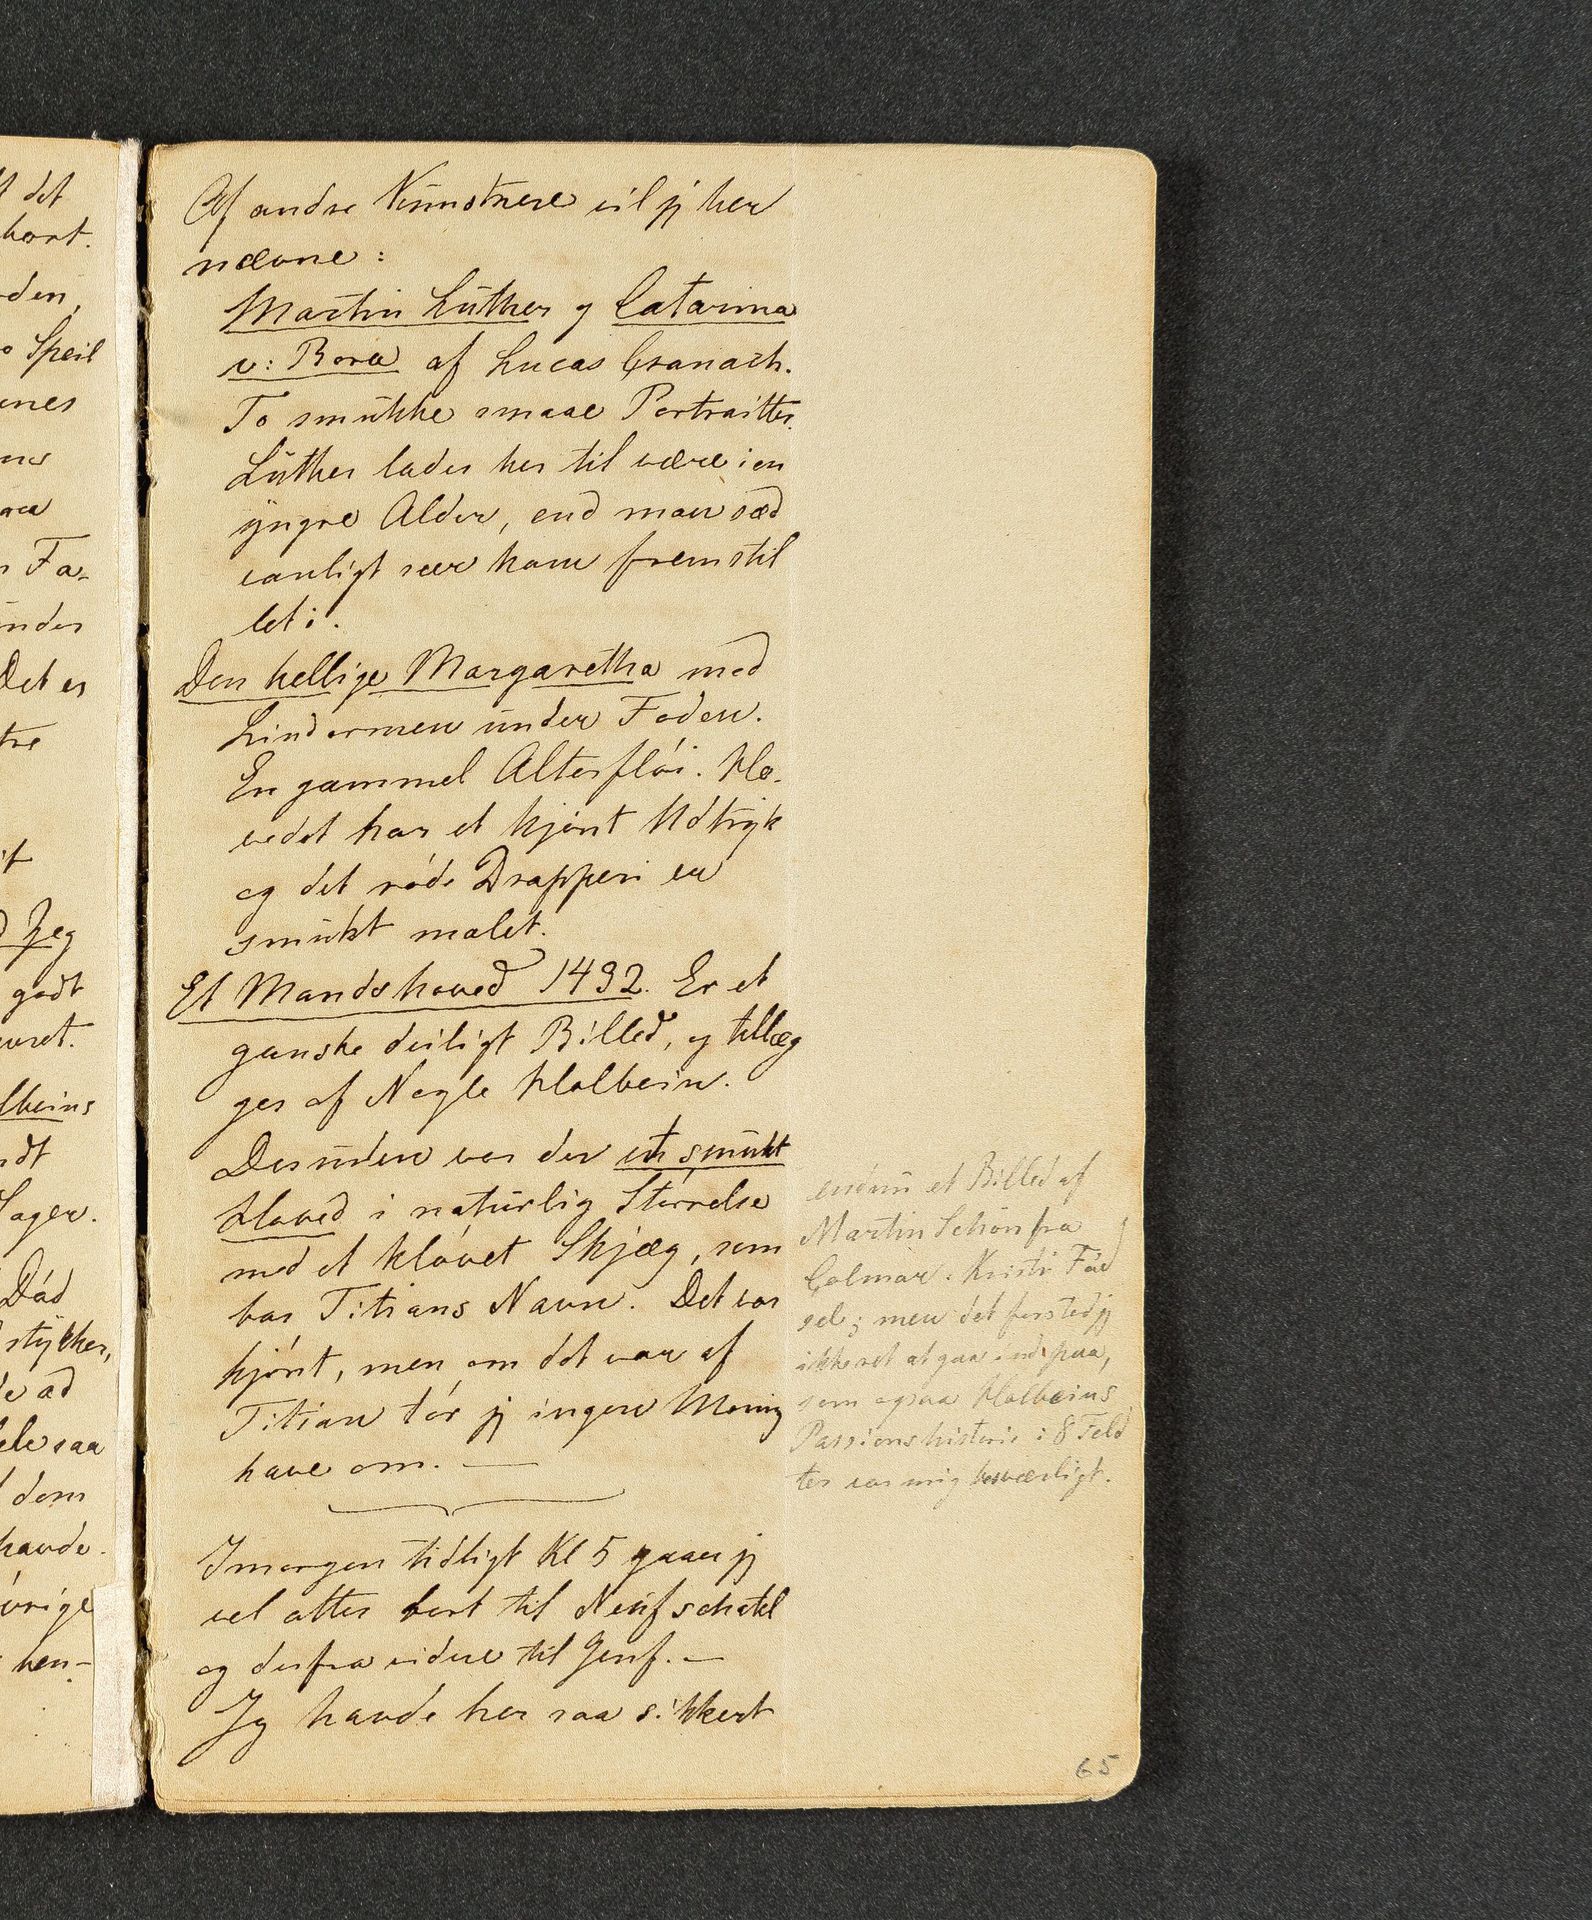 t det
hort.
rden,
o Speil
ones
ns
aa
n Fa-
inder
Det er
tre
it
d Jeg
godt
voret.
lbeins
ndt
Sager.
Död
stykker,
le ad
ele saa
dem
havde.
övrige
hen-
Af andre Kunstnere vil jeg her
nævne:
Martin Luther og Catarina
v: Bora af Lucas Cranach.
To smukke smaae Portraitter.
Luther lader her til være i en
yngre Alder, end man sæd
vanligt seer ham fremstil
let i.
Den hellige Margaretha med
Lindormen under Foden.
En gammel Alterflöi. Ho-
vedet har et kjönt Udtryk
og det röde Drapperi er
smukt malet.
Et Mandshoved 1492. Er et
ganske deiligt Billed, og tillæg
ges af Nogle Holbein.
Desuden var der et smukt
Hoved i naturlig Störrelse
med et klövet Skjæg, som
bar Titians Navn. Det var
kjönt, men om det var af
Titian tör jeg ingen Mening
have om. —
Imorgen tidligt Kl 5 gaaer jeg
vel atter bort til Neufschatel
og derfra videre til Genf. —
Jeg havde her saa sikkert
endnu et Billed af
Martin Schön fra
Colmar. Kristi Föd
sel; men det forstod jeg
ikke ret at gaae ind paa,
som ogsaa Holbeins
Passionshistorie i 8 Feld
ter var mig besværligt.
65